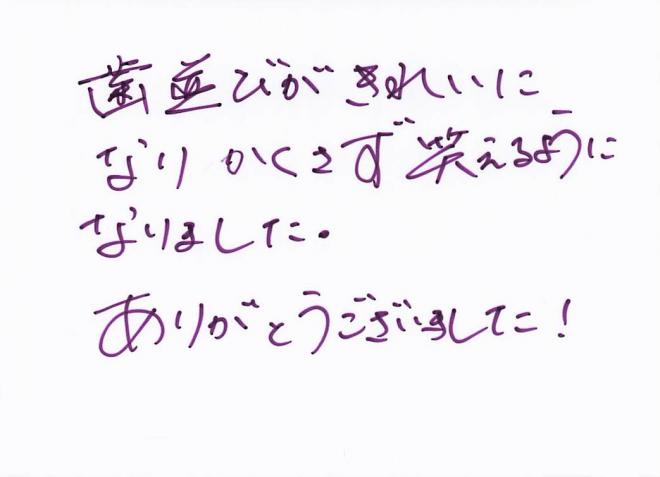 歯並びがきれいに
なりかくさず笑えるように
なりました.
ありがとうございました!